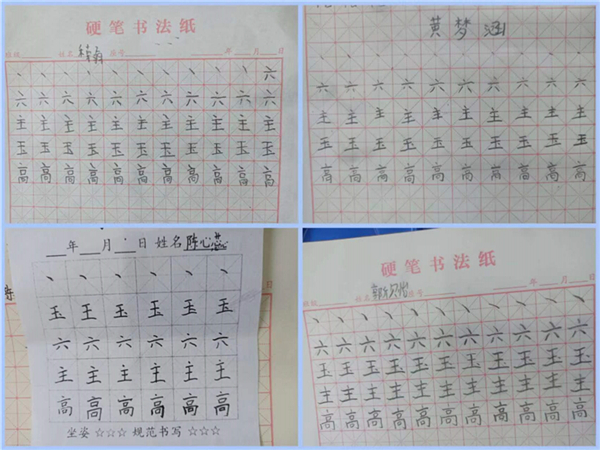 硬笔书法纸
姓名 年 月 日
丶 丶 丶 丶 丶 丶 丶 丶 丶 丶 六
六 六 六 六 六 六 六 六 六 六 六
主 主 主 主 主 主 主 主 主 主 主
玉 玉 玉 玉 玉 玉 玉 玉 玉 玉 玉
高 高 高 高 高 高 高 高 高 高 高
黄梦涵
丶 丶 丶 丶 丶 丶 丶 丶 丶 丶
六 六 六 六 六 六 六 六 六 六
主 主 主 主 主 主 主 主 主 主
玉 玉 玉 玉 玉 玉 玉 玉 玉 玉
高 高 高 高 高 高 高 高 高 高
__年__月__日 姓名陈心蕊
丶 丶 丶 丶 丶 丶
玉 玉 玉 玉 玉 玉
六 六 六 六 六 六
主 主 主 主 主 主
高 高 高 高 高 高
坐姿 ☆☆☆ 规范书写 ☆☆☆
硬笔书法纸
年 月 日
丶 丶 丶 丶 丶 丶 丶 丶 丶 丶 丶
六 六 六 六 六 六 六 六 六 六 六
玉 玉 玉 玉 玉 玉 玉 玉 玉 玉 玉
主 主 主 主 主 主 主 主 主 主 主
高 高 高 高 高 高 高 高 高 高 高